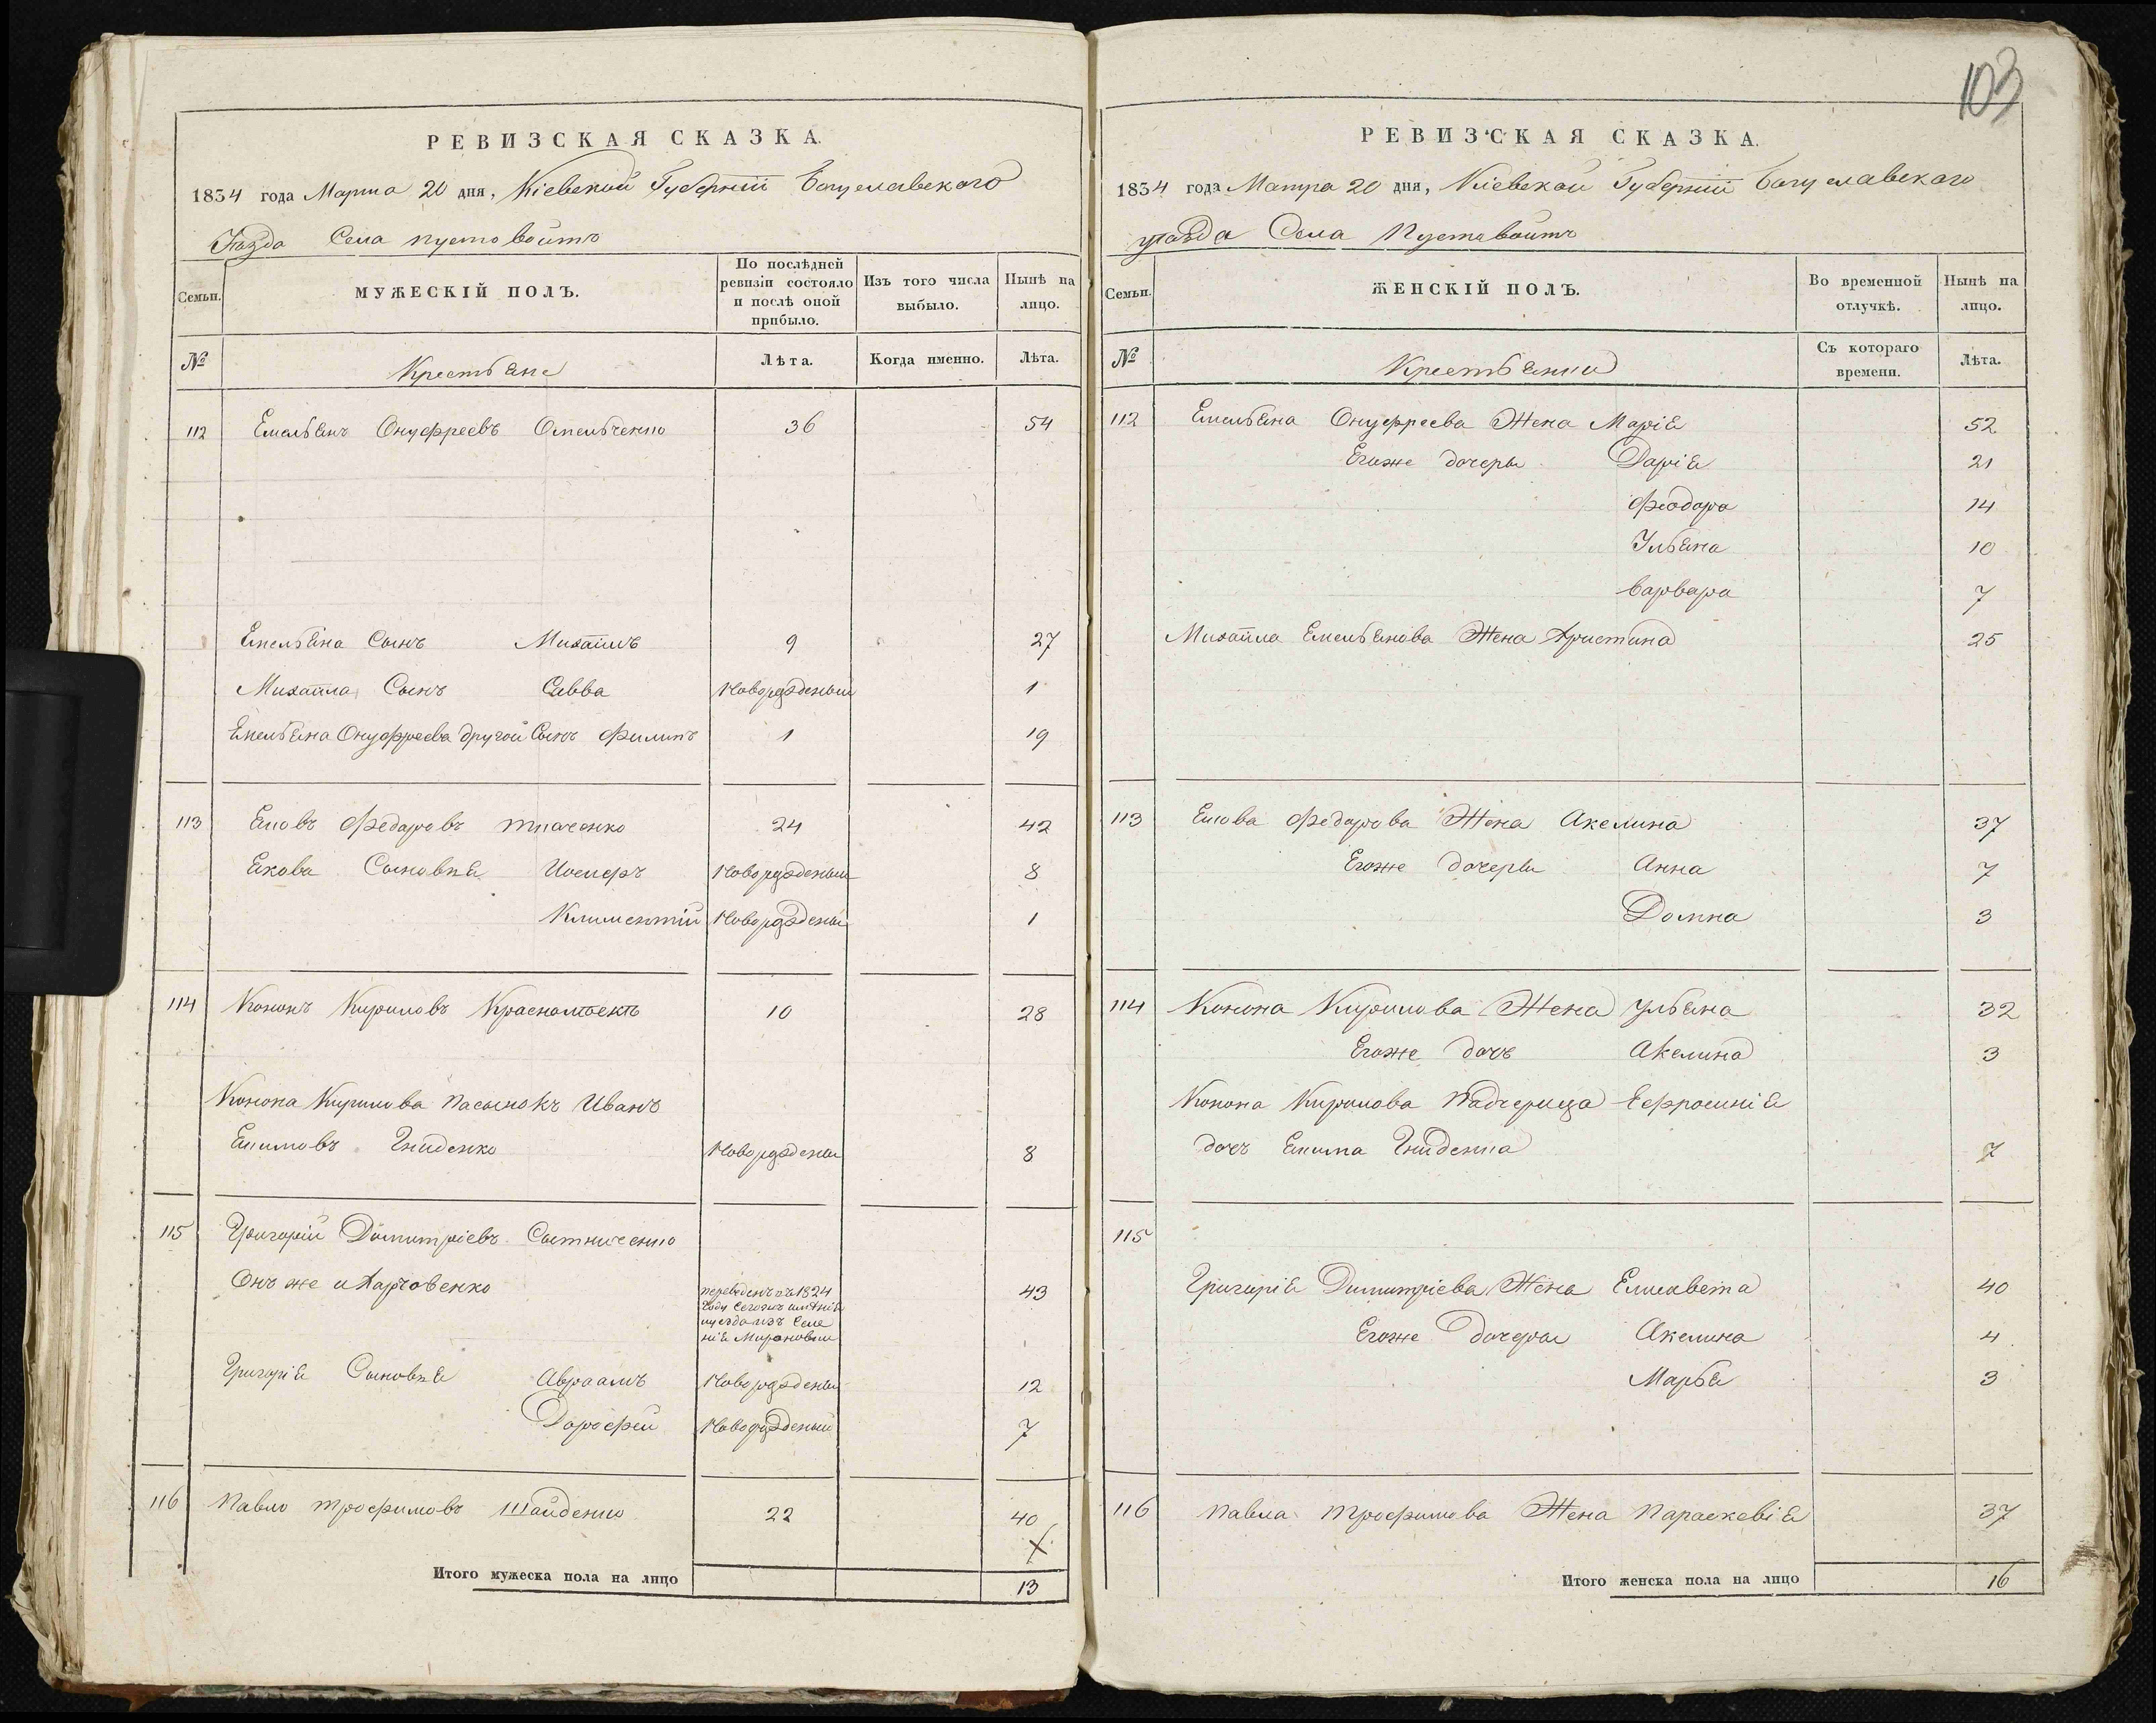 РЕВИЗСКАЯ СКАЗКА.
1834 года Марта 20 дня, Кіевской Губерніи Богуславского
Уѣзда Села пустовойтъ
Семьи. МУЖЕСКІЙ ПОЛЪ. По послѣдней ревизіи состояло и послѣ оной прибыло. Изъ того числа выбыло. Нынѣ на лицо.
№ Крестьяне Лѣта. Когда именно. Лѣта.
112 Емельянъ Онуфреевъ Омельченко 36 54
Емельяна Сынъ Михайлъ 9 27
Михайла Сынъ Савва Новорожденый 1
Емельяна Онуфреева другой Сынъ Филипъ 1 19
113 Яковъ Федоровъ ткаченко 24 42
Якова Сыновья Иосифъ Новорожденый 8
Климентій Новорожденый 1
114 Кононъ Кириловъ 10 28
Конона Кирилова пасынокъ Иванъ
Якимовъ Гниденко Новорожденый 8
115 Григорій Димитріевъ Сытниченко
Онъ же и Харчовенко переведенъ въ 1824 43
году
уезда изъ Селе
нія Мироновки
Григорія Сыновья Авраамъ Новорожденый 12
Дорофей Новорожденый 7
116 Павло трофимовъ Шайденко 22 40
Итого мужеска пола на лицо 13
103
РЕВИЗСКАЯ СКАЗКА.
1834 года Матра 20 дня, Кіевской Губерніи Богуславского
уѣзда Села Пуставойтъ
Семьи. ЖЕНСКІЙ ПОЛЪ. Во временной отлучкѣ. Нынѣ на лицо.
№ Крестьянки Съ котораго времени. Лѣта.
112 Емельяна Онуфреева Жена Марія 52
Егоже дочеры Дарія 21
Феодора 14
Ульяна 10
Варвара 7
Михайла Емельянова Жена Христина 25
113 Якова Федорова Жена Акелина 37
Егоже дочеры Анна 7
Домна 3
114 Конона Кирилова Жена Ульяна 32
Егоже дочь Акелина 3
Конона Кирилова Падчерица Ефросинія
дочъ Якима Гниденка 7
115
Григорія Димитріева Жена Елисавета 40
Егоже Дочеры Акелина 4
Марья 3
116 Павла Трофимова Жена Параскевія 37
Итого женска пола на лицо 16